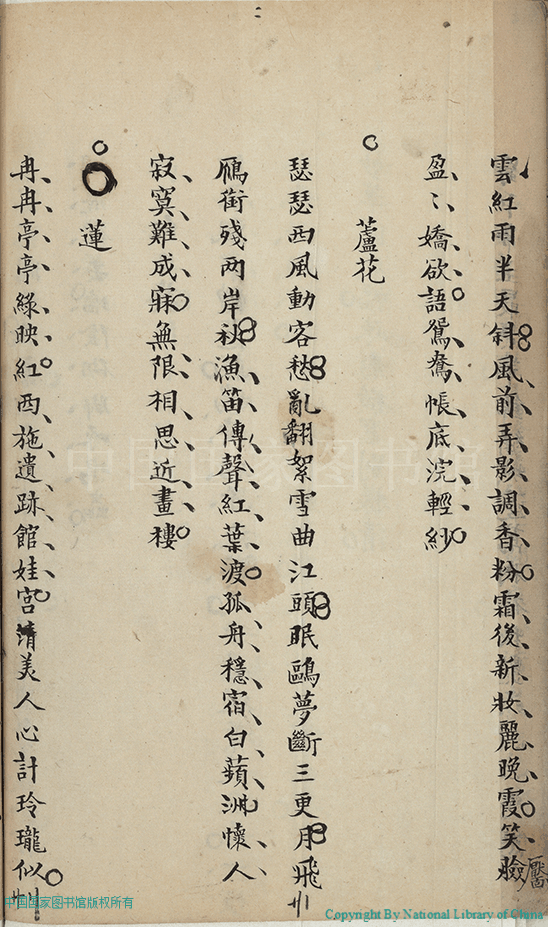 雲紅雨半天斜風前弄影調香粉霜後新妝麗晚霞笑臉
盈〻嬌欲語鴛鴦帳底浣輕紗
蘆花
瑟瑟西風動客愁亂翻絮雪曲江頭眠鷗夢斷三更月飛
鴈銜殘两岸秋漁笛傳聲紅葉渡孤舟穩宿白蘋洲懷人
寂寞難成寐無限相思近畫樓
蓮
冉冉亭亭綠映紅西施遺跡館娃宮清美人心計玲瓏似
中国国家图书馆
中国国家图书馆版权所有
Copyright By National Library of China